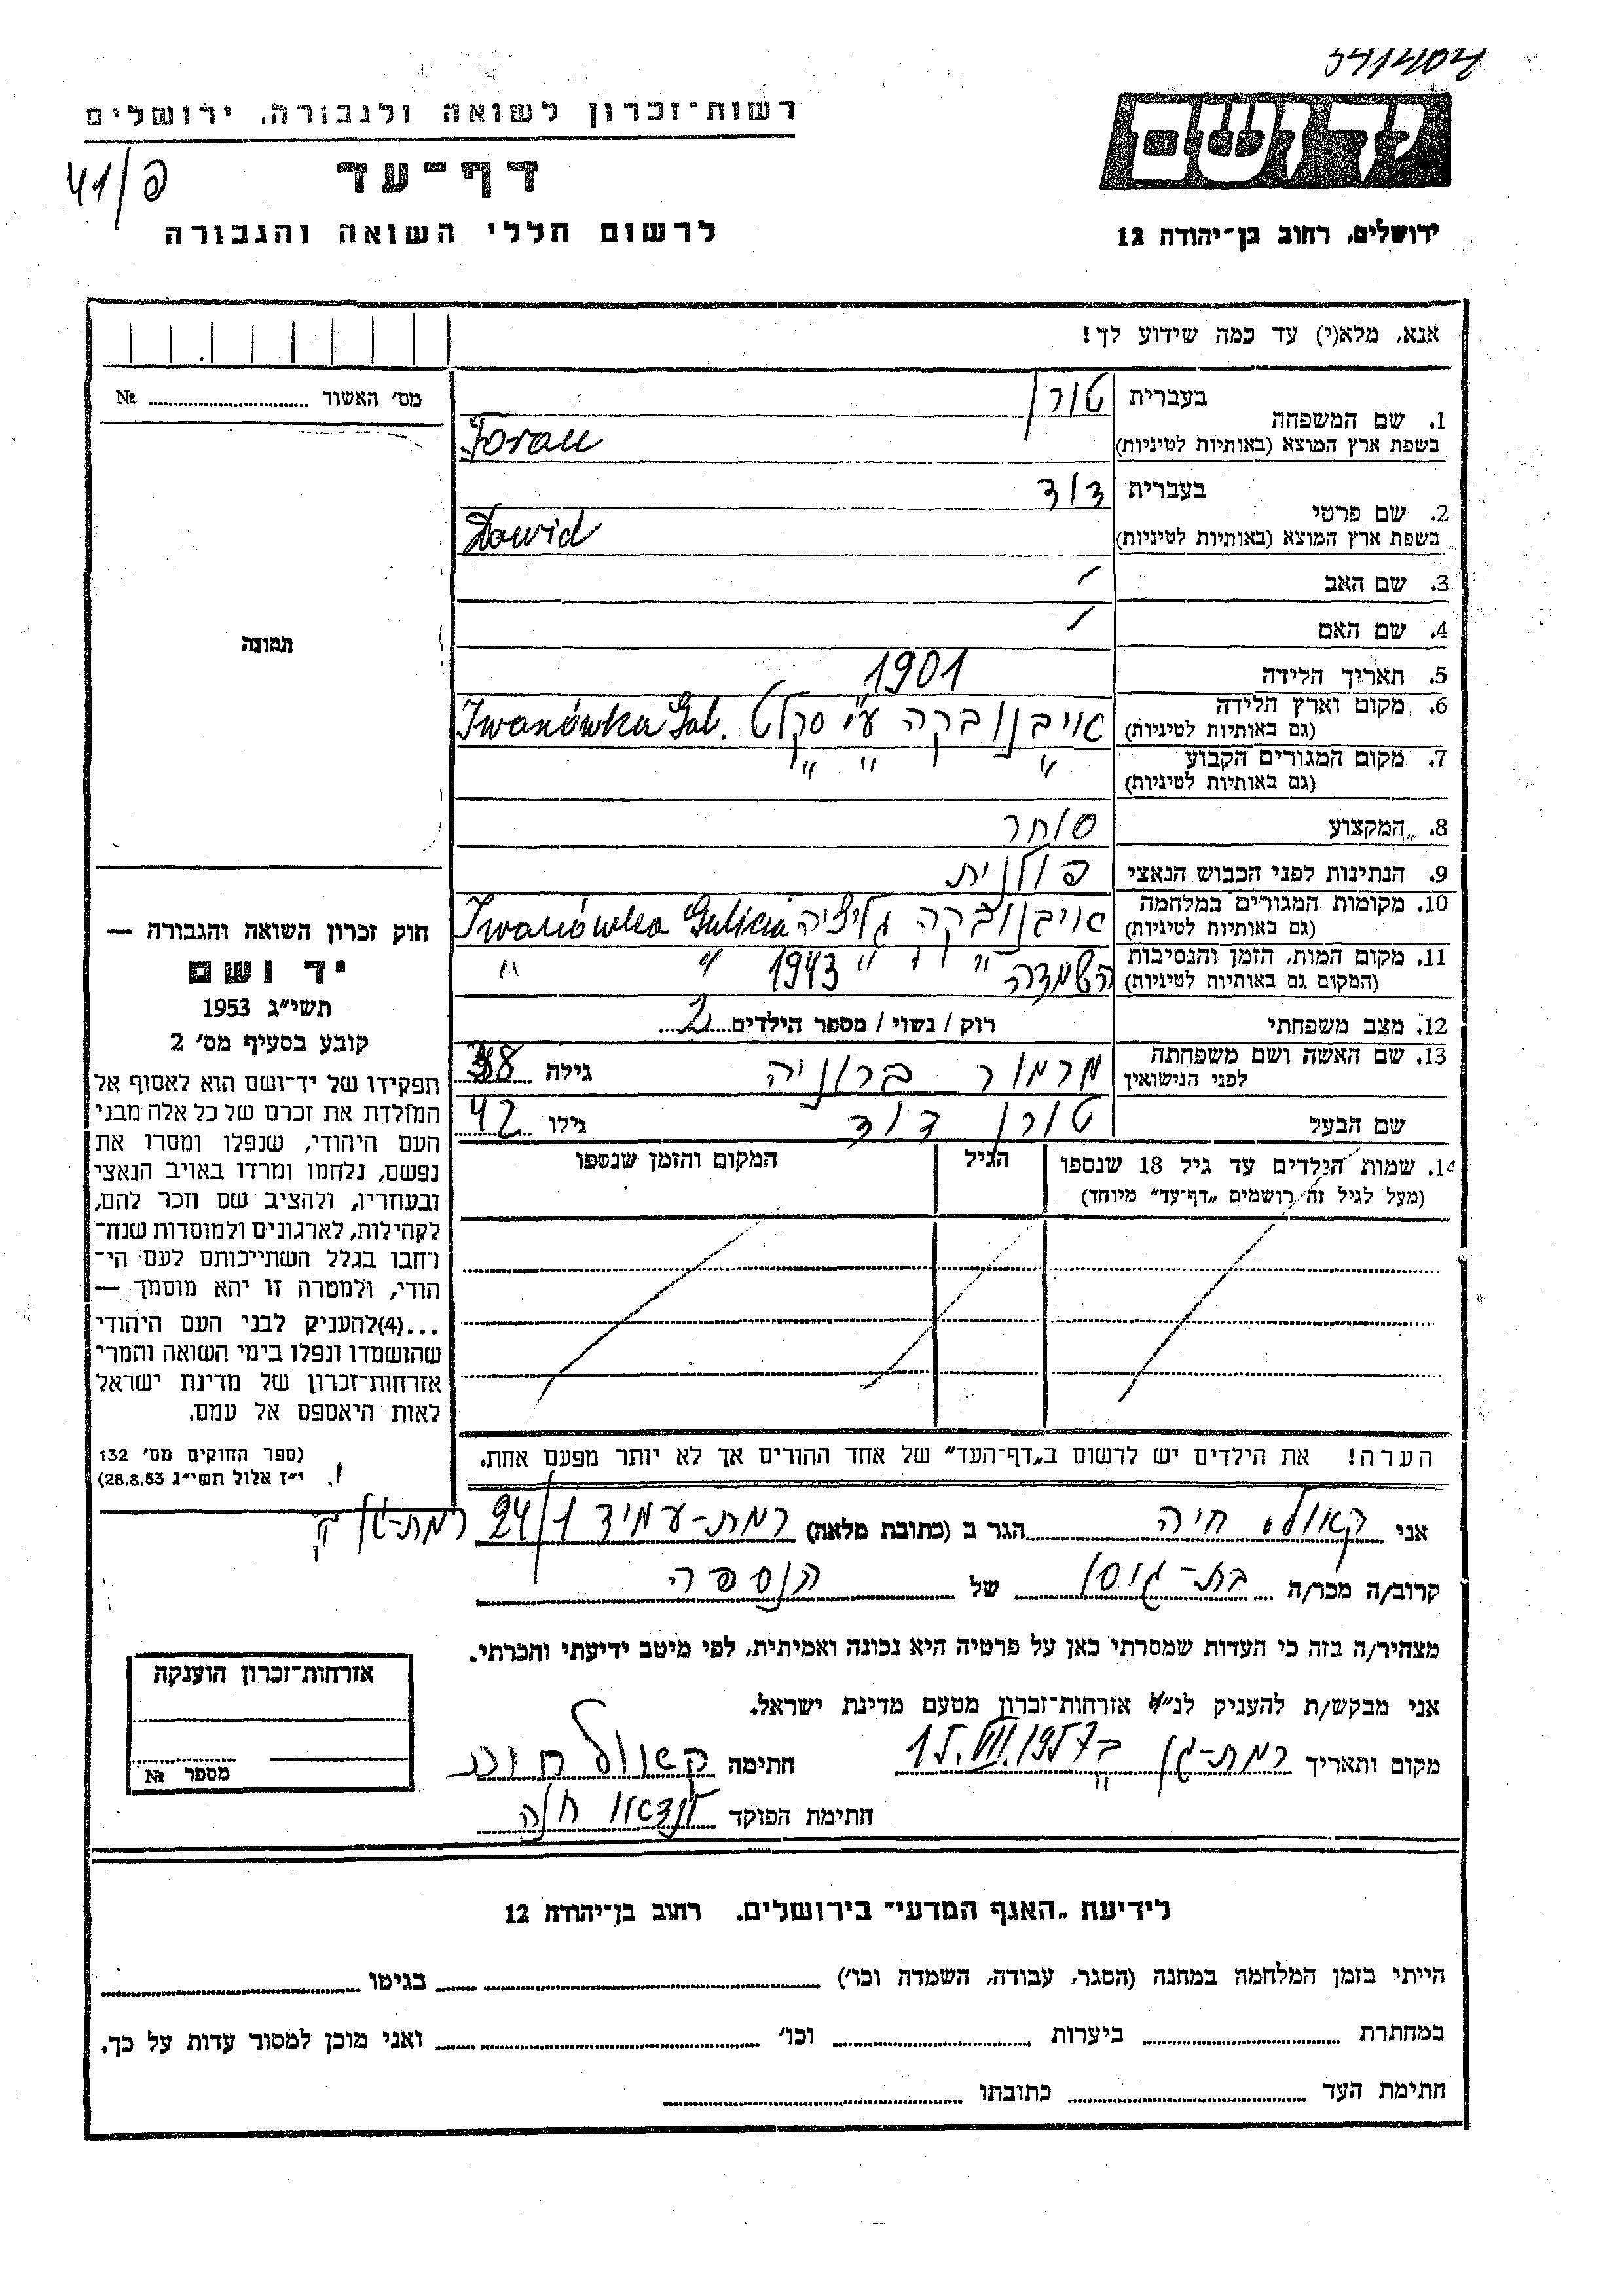 רשות-זכרון לשואה ולגבורה, ירושלים
יד ושם
41/פ
דף-עד
לרשום חללי השואה והגבורה
ירושלים, רחוב בן-יהודה 12
אנא, מלא(י) עד כמה שידוע לך!
מס׳ האשור № 
1. שם המשפחה בעברית טורן
בשפת ארץ המוצא (באותיות לטיניות) Toran
2. שם פרטי בעברית דוד
בשפת ארץ המוצא (באותיות לטיניות) Dawid
3. שם האב /
4. שם האם /
5. תאריך הלידה 1901
6. מקום וארץ הלידה (גם באותיות לטיניות) איבנוברקה ע״י סקלט Iwanówka Gal.
7. מקום המגורים הקבוע (גם באותיות לטיניות) " " "
8. המקצוע סוחר
9. הנתינות לפני הכבוש הנאצי פולנית
10. מקומות המגורים במלחמה (גם באותיות לטיניות) איבנוברקה גליציה Iwanówka Galicia
11. מקום המות, הזמן והנסיבות (המקום גם באותיות לטיניות) השמדה " " 1943 " "
12. מצב משפחתי רוק / נשוי / מספר הילדים 2
13. שם האשה ושם משפחתה לפני הנישואין מרמור ברוניה גילה 38
שם הבעל טורן דוד גילו 42
14. שמות הילדים עד גיל 18 שנספו (מעל לגיל זה רושמים „דף-עד" מיוחד)
הגיל
המקום והזמן שנספו
הערה! את הילדים יש לרשום ב„דף-העד" של אחד ההורים אך לא יותר מפעם אחת.
תמונה
חוק זכרון השואה והגבורה —
יד ושם
תשי״ג 1953
קובע בסעיף מס׳ 2
תפקידו של יד-ושם הוא לאסוף אל
המולדת את זכרם של כל אלה מבני
העם היהודי, שנפלו ומסרו את
נפשם, נלחמו ומרדו באויב הנאצי
ובעוזריו, ולהציב שם וזכר להם,
לקהילות, לארגונים ולמוסדות שנח-
רחבו בגלל השתייכותם לעם הי-
הודי, ולמטרה זו יהא מוסמך —
...(4)להעניק לבני העם היהודי
שהושמדו ונפלו בימי השואה והמרי
אזרחות-זכרון של מדינת ישראל
לאות היאספם אל עמם.
(ספר החוקים מס׳ 132
י״ז אלול תשי״ג 28.8.53)
אני קאול חיה הגר ב (כתובת מלאה) רמת-עמידר 24/1 רמת-גן
קרוב/ה מכר/ה בת-גיסן של הנספה
מצהיר/ה בזה כי העדות שמסרתי כאן על פרטיה היא נכונה ואמיתית, לפי מיטב ידיעתי והכרתי.
אני מבקש/ת להעניק לנ״ל אזרחות-זכרון מטעם מדינת ישראל.
מקום ותאריך רמת-גן ב 15.VII.1957 חתימה קאול חיה
חתימת הפוקד לנדאו חנה
אזרחות-זכרון הוענקה
מספר №
לידיעת „האגף המדעי" בירושלים, רחוב בן-יהודה 12
הייתי בזמן המלחמה במחנה (הסגר, עבודה, השמדה וכו׳) בגיטו
במחתרת ביערות וכו׳ ואני מוכן למסור עדות על כך.
חתימת העד כתובתו